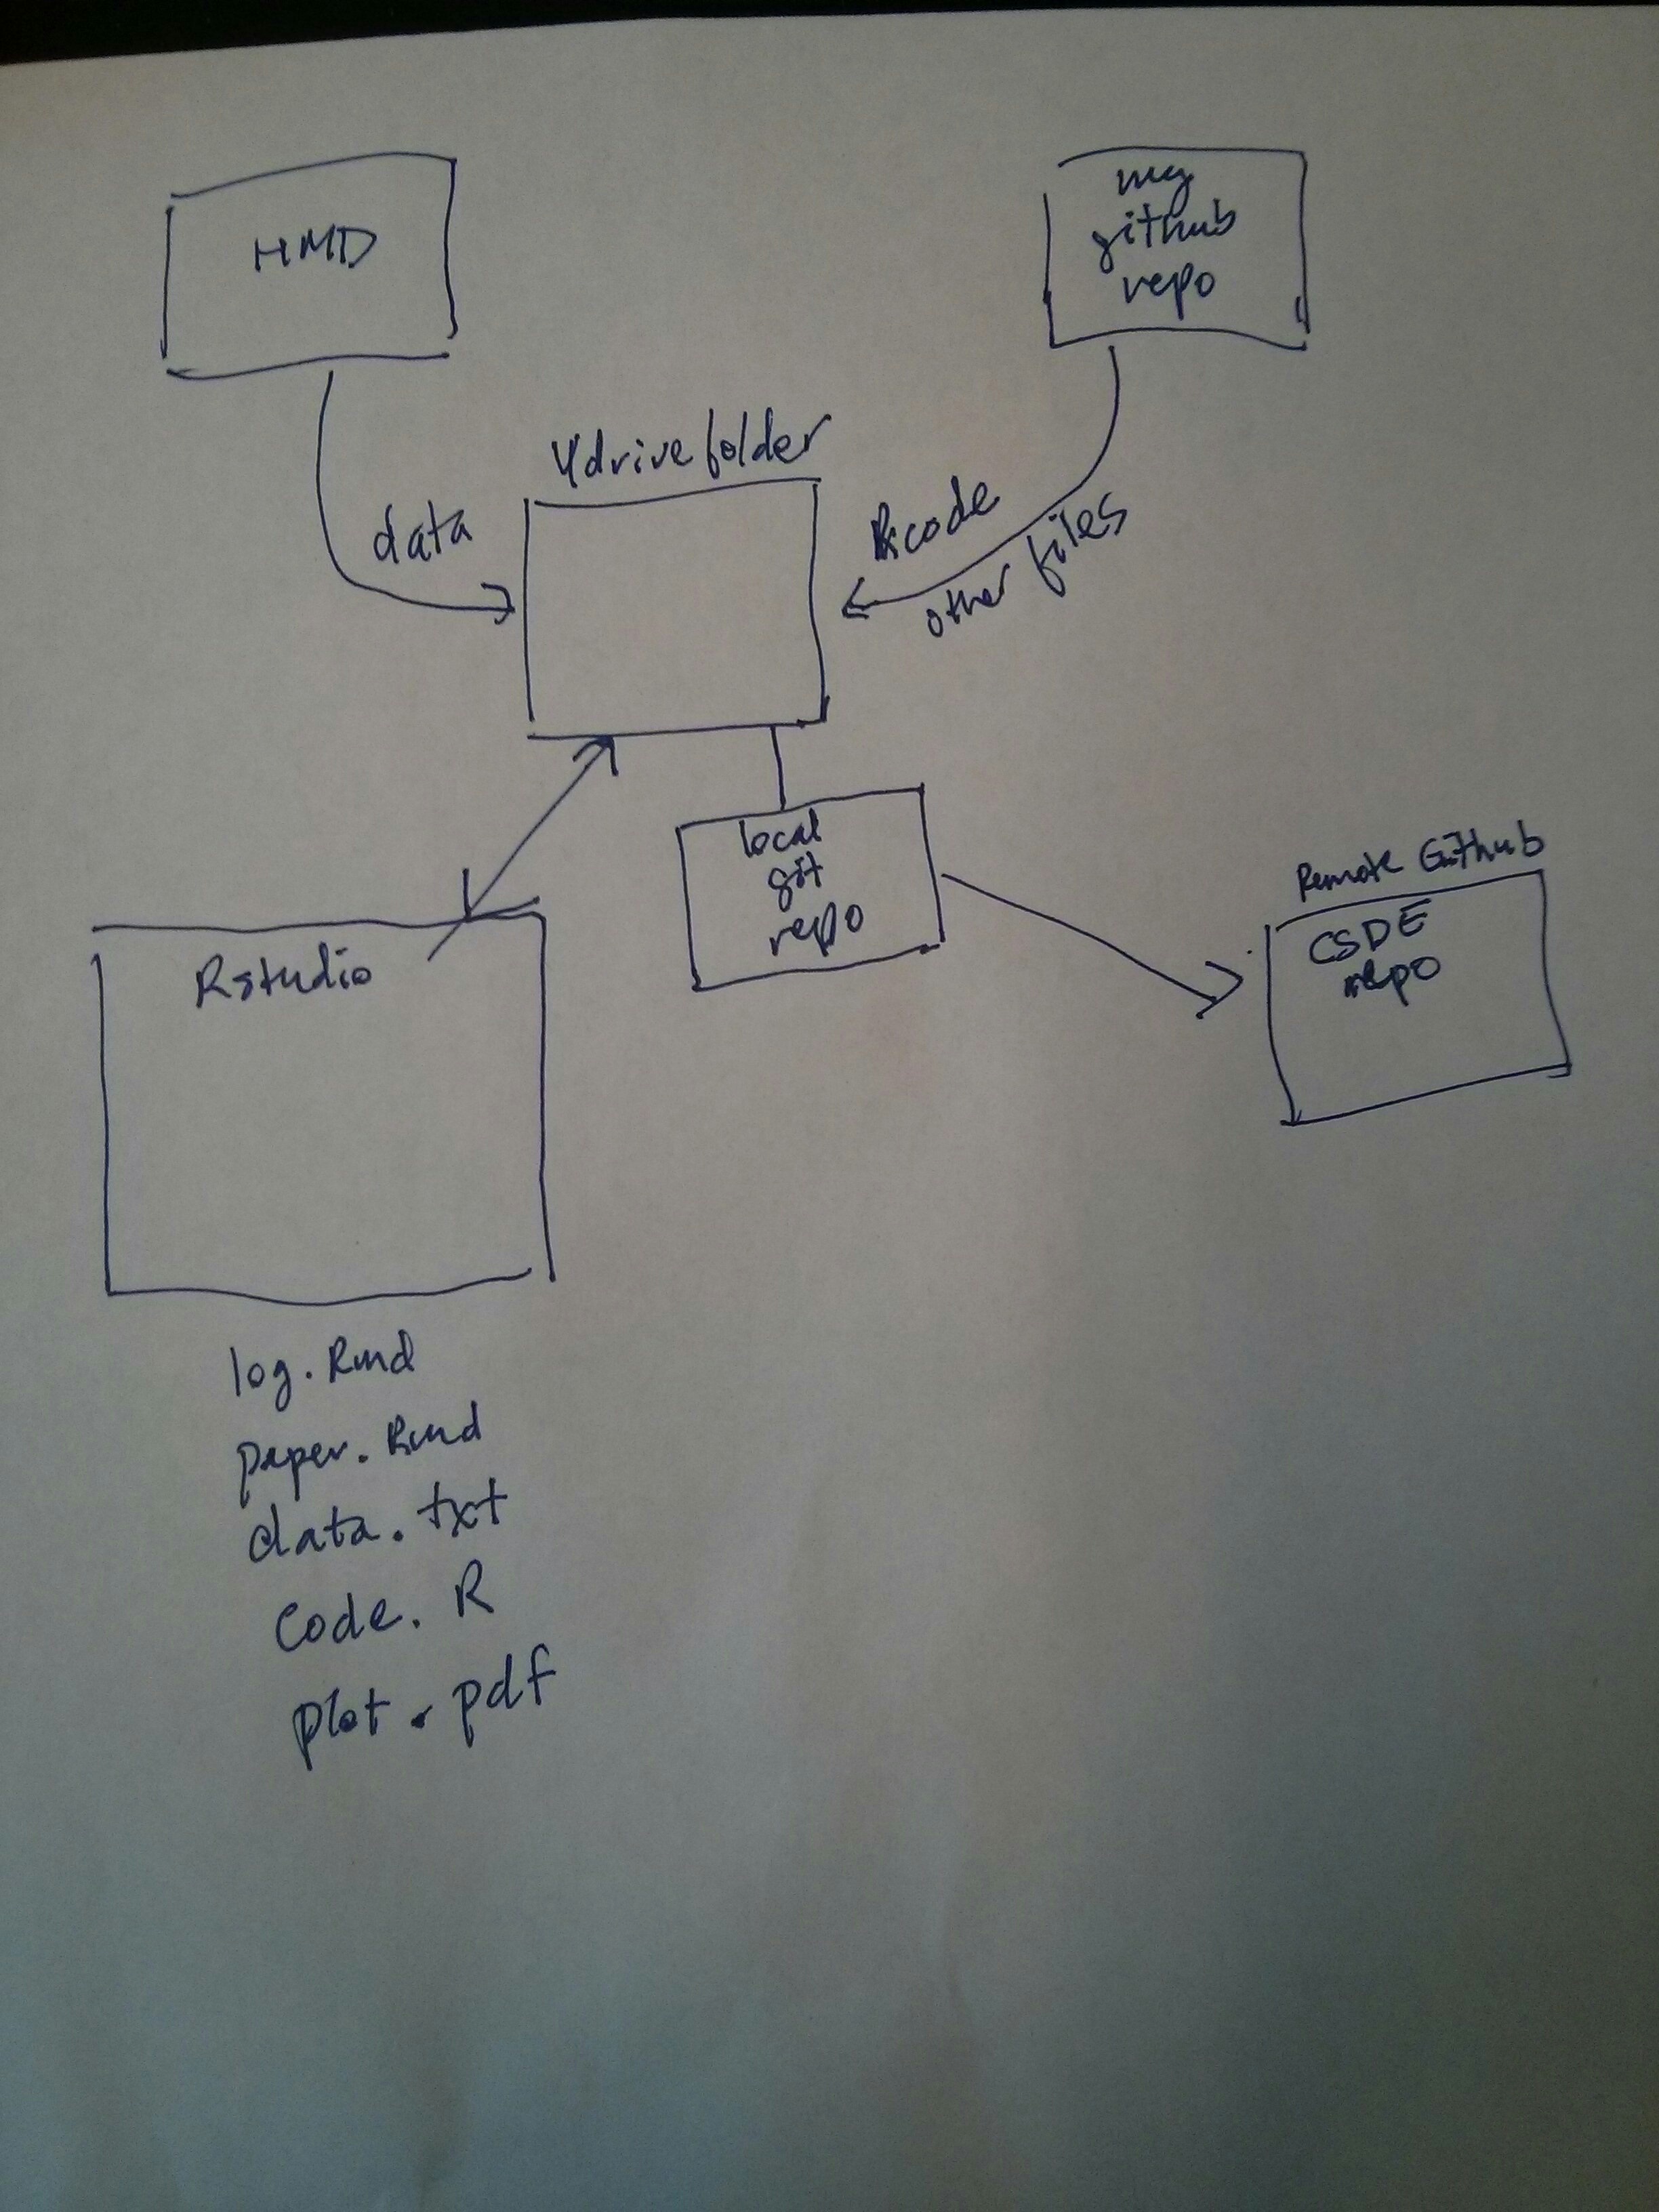 HMD
my
github
repo
data
Ydrive folder
Rcode
other files
local
git
repo
Remote Github
CSDE
repo
Rstudio
log.Rmd
paper.Rmd
data.txt
Code.R
plot.pdf